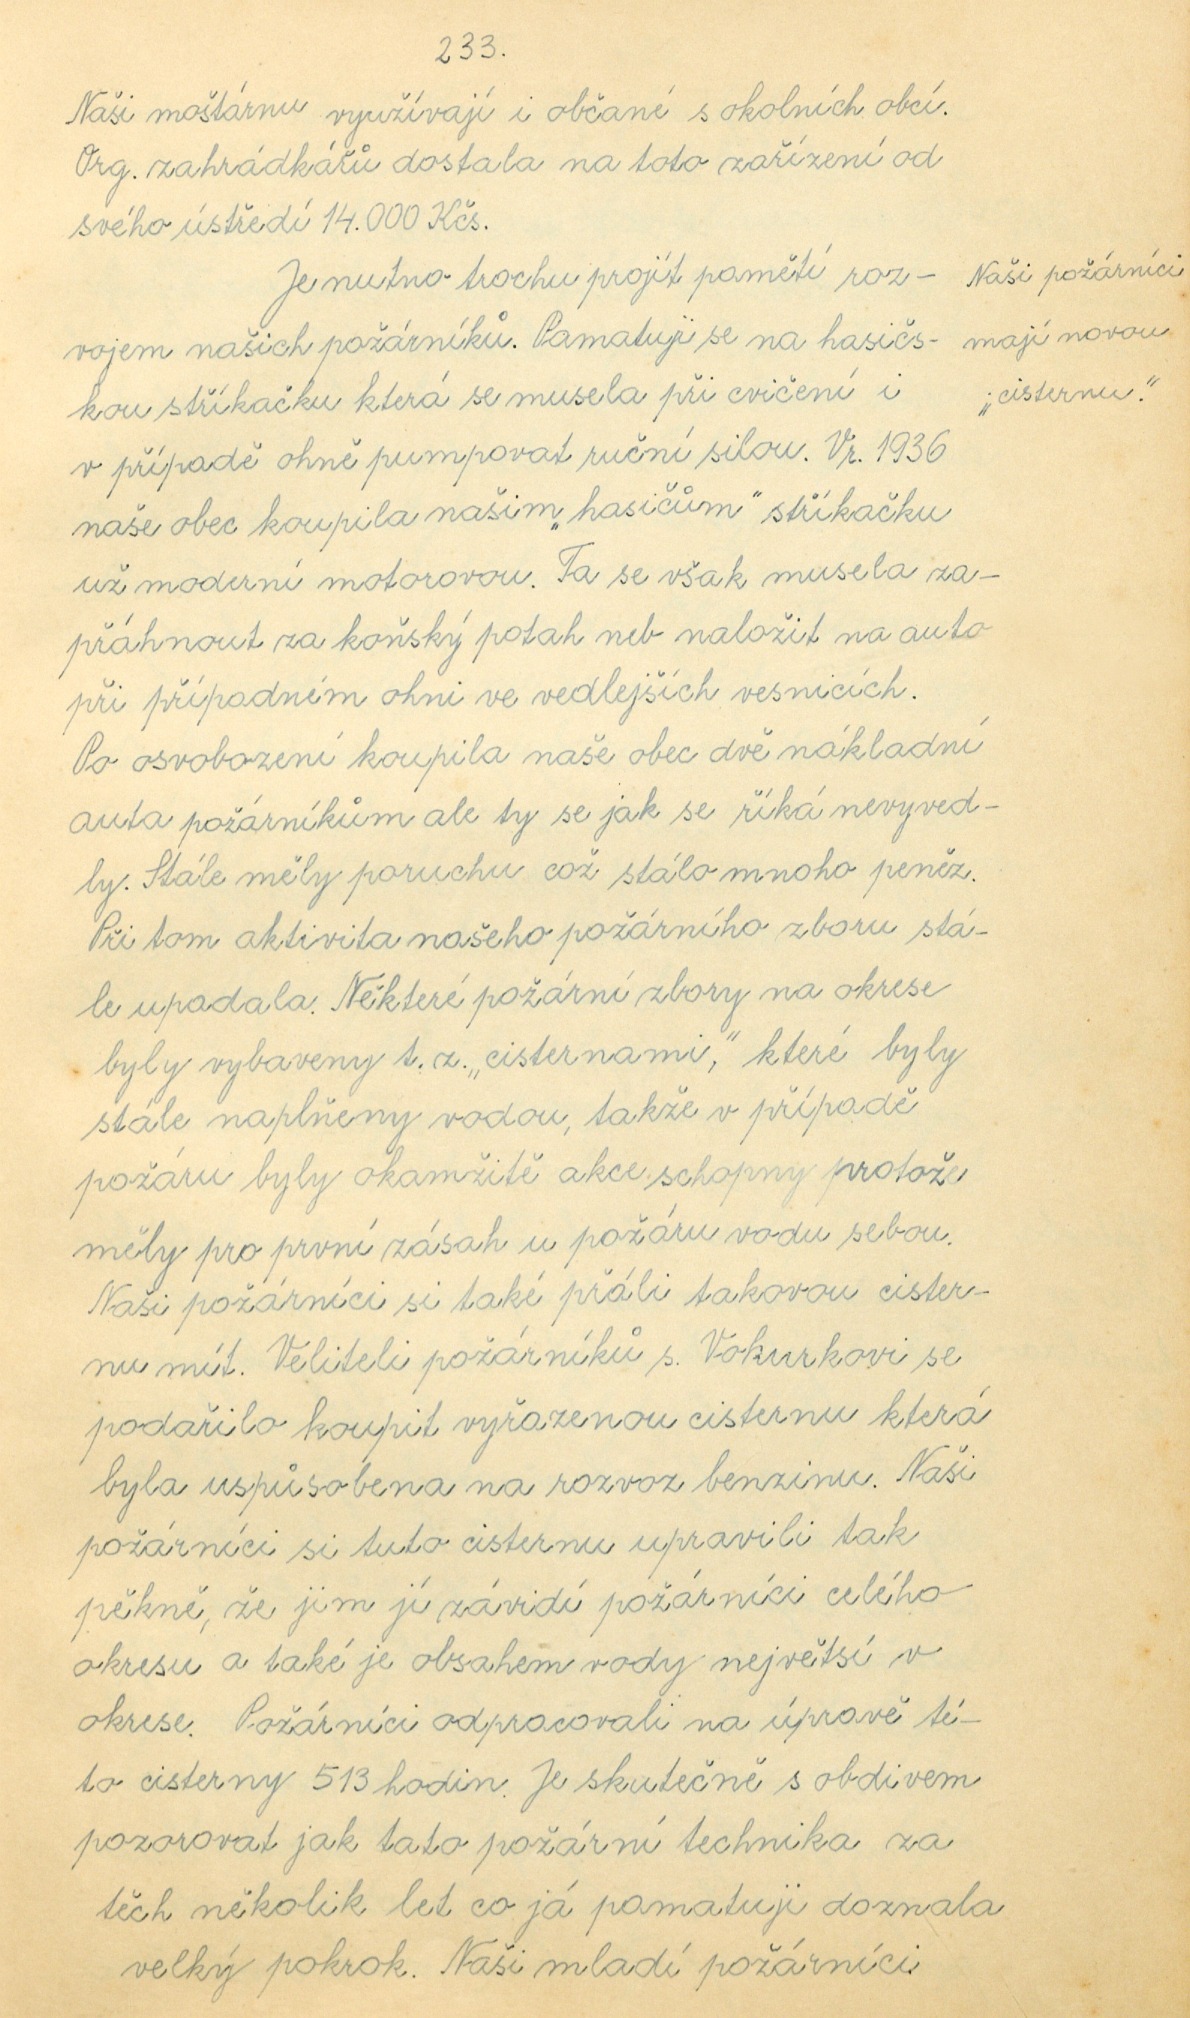 233.
Naši moštárnu využívají i občané s okolních obcí.
Org. zahrádkářů dostala na toto zařízení od
svého ústředí 14.000 Kčs.
Je nutno trochu projít pamětí roz-
Naši požárníci
vojem našich požárníků. Pamatuji se na hasičs-
mají novou
kou stříkačku která se musela při cvičení i
„cisternu."
v případě ohně pumpovat ruční silou. V r. 1936
naše obec koupila našim „hasičům" stříkačku
už moderní motorovou. Ta se však musela za-
přáhnout za koňský potah neb naložit na auto
při případném ohni ve vedlejších vesnicích.
Po osvobození koupila naše obec dvě nákladní
auta požárníkům ale ty se jak se říká nevyved-
ly. Stále měly poruchu což stálo mnoho peněz.
Při tom aktivita našeho požárního zboru stá-
le upadala. Některé požární zbory na okrese
byly vybaveny t. z. „cisternami," které byly
stále naplňeny vodou, takže v případě
požáru byly okamžitě akce schopny protože
měly pro první zásah u požáru vodu sebou.
Naši požárníci si také přáli takovou cister-
nu mít. Veliteli požárníků s. Vokurkovi se
podařilo koupit vyřazenou cisternu která
byla uspůsobena na rozvoz benzinu. Naši
požárníci si tuto cisternu upravili tak
pěkně, že jim jí závidí požárníci celého
okresu a také je obsahem vody největsí v
okrese. Požárníci odpracovali na úpravě té-
to cisterny 513 hodin. Je skutečně s obdivem
pozorovat jak tato požární technika za
těch několik let co já pamatuji doznala
velký pokrok. Naši mladí požárníci